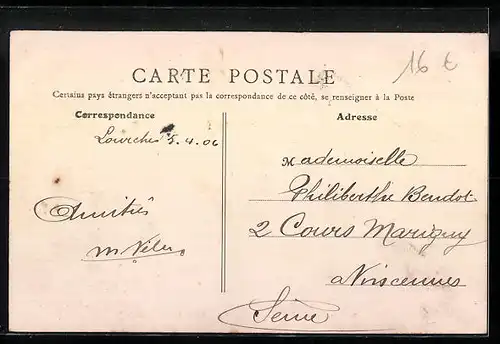 16 €
CARTE POSTALE
Certains pays étrangers n'acceptant pas la correspondance de ce côté, se renseigner à la Poste
Correspondance
Adresse
Lourches 5.4.06
Mademoiselle
Philiberthe Bendot
Amitiés
2 Cours Marigny
a Vincennes
Seine